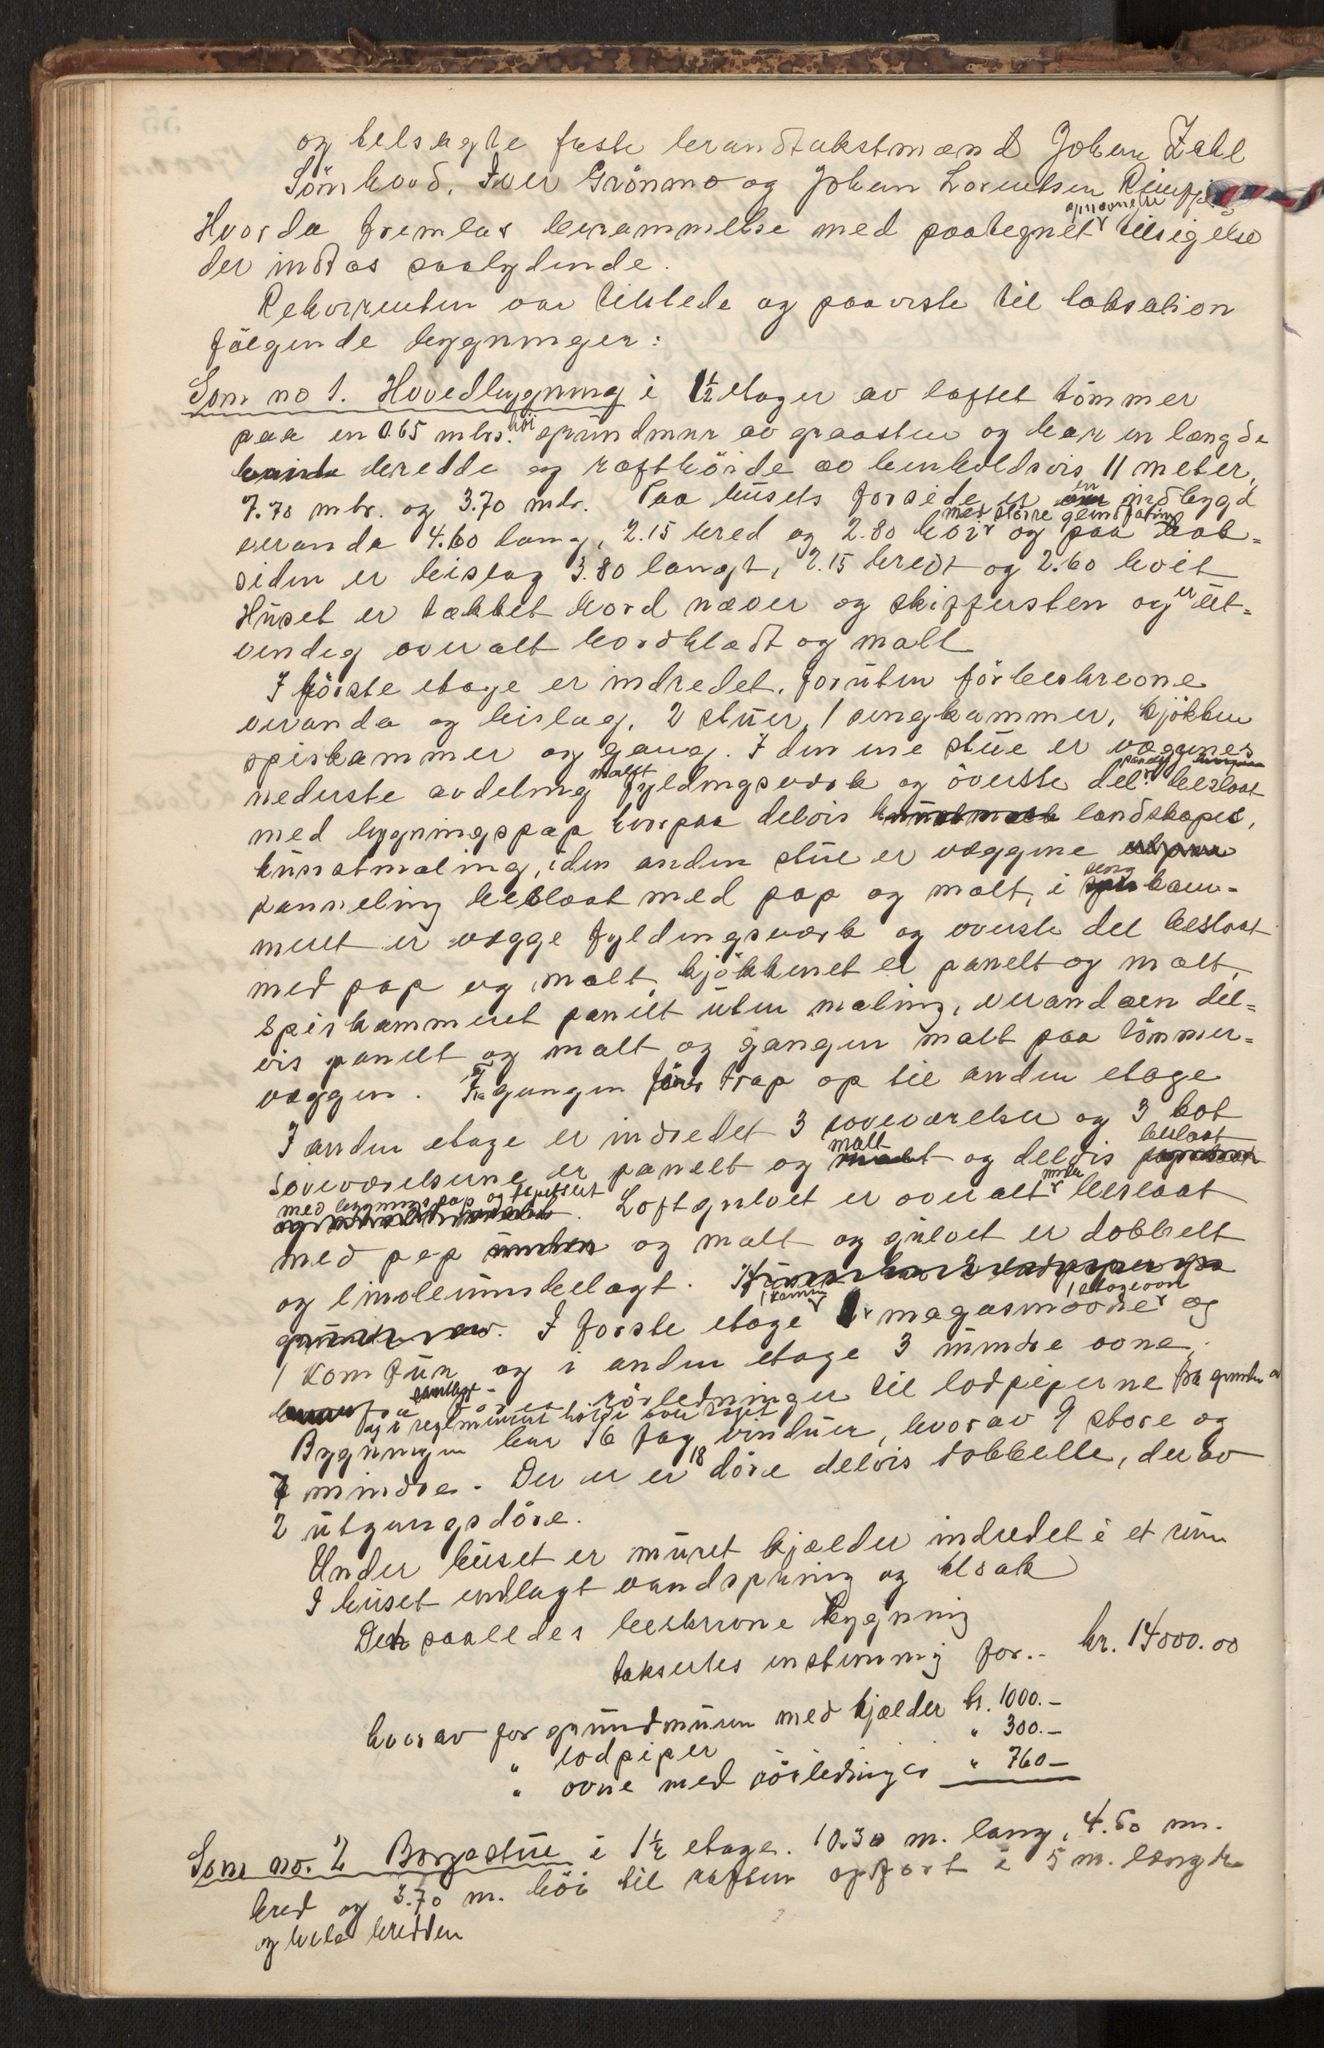 og tilsagte faste brandtakstmænd Johan Zahl
Sörnhovd, Iver Grönmo og Johan Lorentsen
Hvorda fremlas berammelse med paategnet opnævnelse tilsigelse
der indtas saalydende.
Rekvirenten var tilstede og paaviste til taksation
fölgende bygninger:
Som no 1. Hovedbygning i 1½ etager av laftet tömmer
paa en 0.65 mtrs. höi grundmur av graasten og har en længde
bredde og rafthöide av henholdsvis 11 meter,
7.70 mtr. og 3.70 mtr. Paa husets forside er en indbygd
veranda 4.60 lang, 2.15 bred og 2.80 höi med större glindfating og paa bak-
siden er bislag 3.80 langt, 2.15 bredt og 2.60 höit
Huset er tækket bord næver og skiffersten og er ut-
vendig overalt bordklædt og malt
I förste etage er indredet, foruten förbeskrevne
veranda og bislag, 2 stuer, 1 sengkammer, kjökken
spiskammer og gang. I den ene stue er væggenes
nederste avdeling malt fyldingsværk og överste del beslaat
med bygningspap hvorpaa delvis landskaps,
kunstmaling, i den anden stue er væggene
panneling beslaat med pap og malt, i seng kam-
meret er vægge fyldingsværk og överste del beslaat
med pap og malt, kjökkenet er panelt og malt,
spiskammeret panelt uten maling, verandaen del-
vis panelt og malt og gangen malt paa tömmer-
væggen. Fra gangen förer trap op til anden etage
I anden etage er indredet 3 soveværelser og 3 kot
Soveværelserne er panelt og malt og delvis beslaat
med bygningspap og tapetsert. Loftgulvet er overalt under beslaat
med pap og malt og gulvet er dobbelt
og linoleumsbelagt.
I förste etage 1 kamin 1 magasinovne 1 etageovn og
1 komfür og i anden etage 3 mindre ovne,
samtlige rörledninger til lodpiperne fra grunden av
og i reglementert höide over taget
Bygningen har 16 fag vinduer, hvorav 9 store og
7 mindre. Der er 18 döre delvis dobbelte, derav
2 utgangsdöre.
Under huset er muret kjælder indredet i et rum
I huset indlagt vandspring og utslak
Den saaledes beskrevne bygning
taksertes enstemmig for.. kr. 14000.00
hvorav for grundmuren med kjælder kr. 1000.-
" lodpiper " 300.-
" ovne med rörledninger " 760-
Som no. 2 Borgestue i 1½ etage. 10.30 m. lang, 4.60 m.
bred og 3.70 m. höi til raften opfört i 5 m. længde
og hele bredden